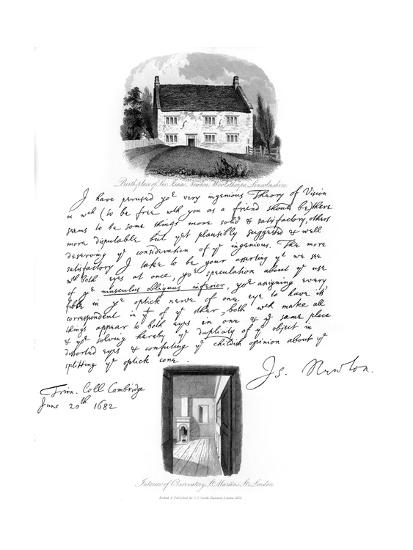 Birth place of Sir Isaac Newton, Woolsthorpe, Lincolnshire
I have perused yor very ingenious Theory of Vision
in wch (to be free with you as a friend should be) there
seems to be some things more solid & satisfactory, others
more disputable but yet plausibly suggested & well
deserving ye consideration of ye ingenious. The more
satisfactory I take to be your asserting yt we see
wth both eyes at once, yor speculation about ye use
of ye musculus obliquus inferior, yor assigning every
fibre in ye optick nerve of one eye to have its
correspondent in yt of ye other, both wch make all
things appear to both eyes in one & ye same place
& yor solving hereby ye duplicity of ye object in
distorted eyes & confuting ye childish opinion about ye
splitting ye optick cone.
Is. Newton.
Trin. Coll Cambridge
June 20th 1682
Interior of Observatory, St Martins St London